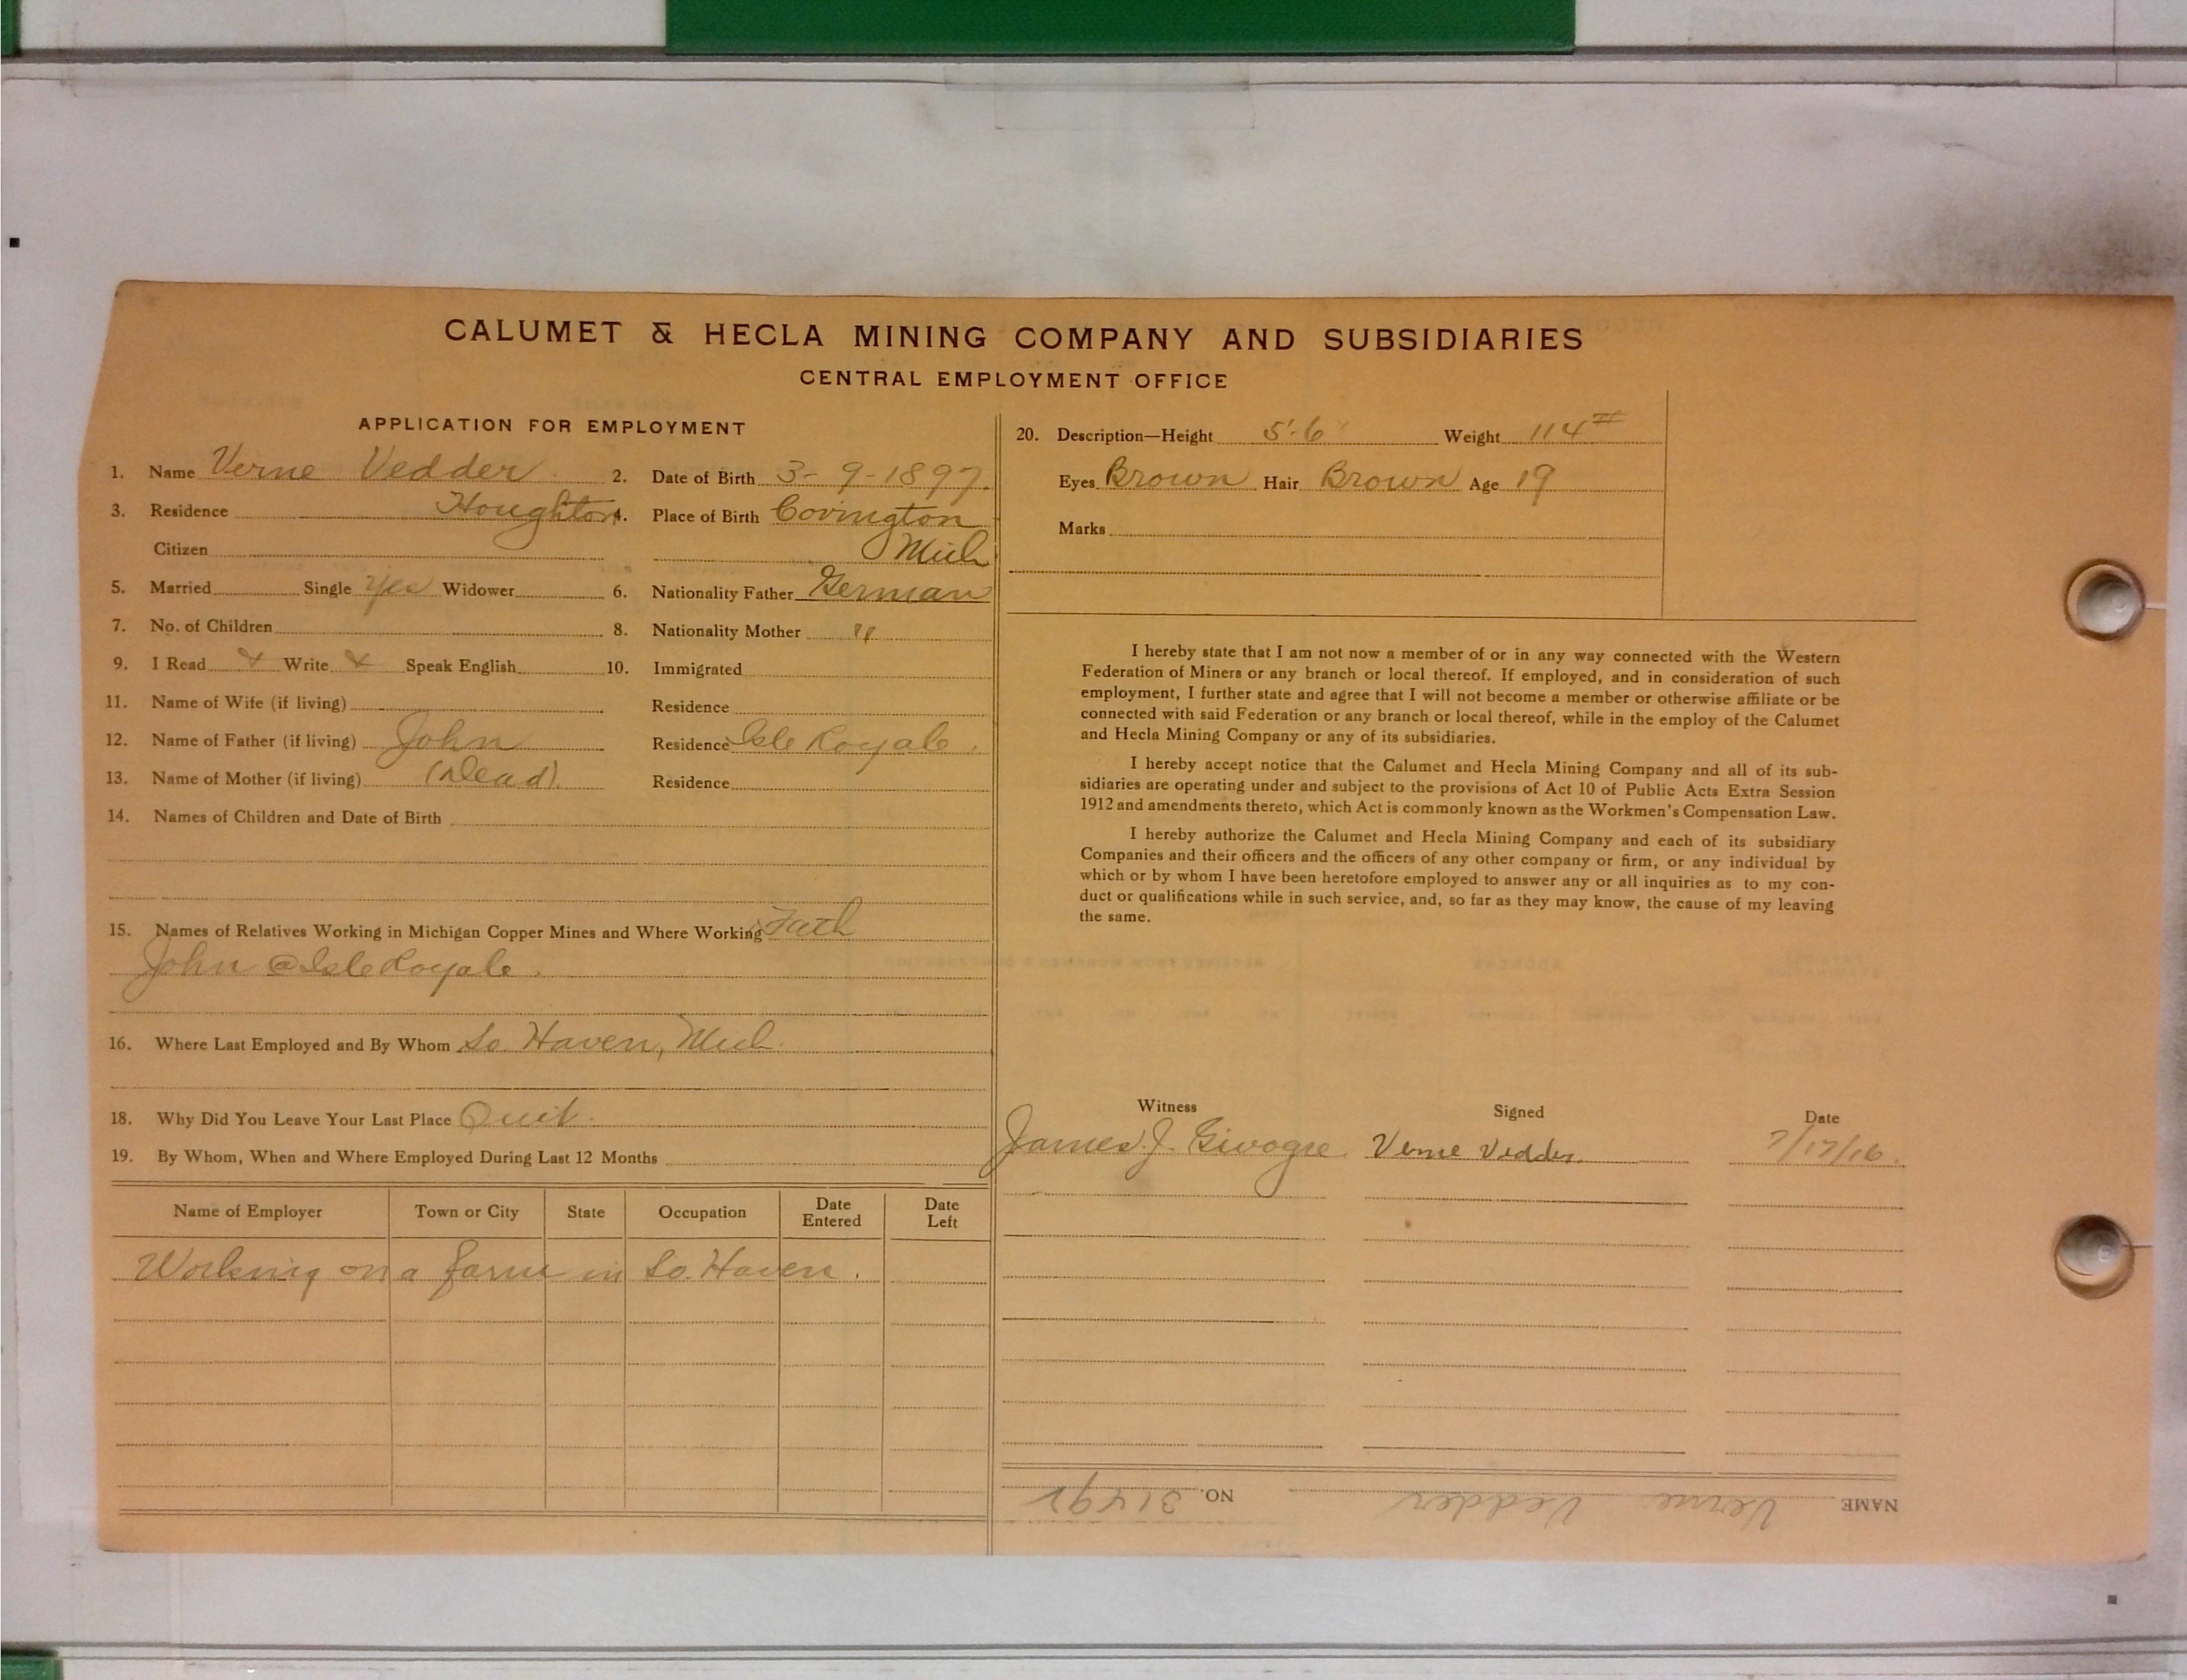 CALUMET & HECLA MINING COMPANY AND SUBSIDIARIES
CENTRAL EMPLOYMENT OFFICE
APPLICATION FOR EMPLOYMENT
1. Name Verne Vedder 2. Date of Birth 3-9-1897.
3. Residence Houghton 4. Place of Birth Covington
Citizen Mich
5. Married Single Yes Widower 6. Nationality Father German
7. No. of Children 8. Nationality Mother "
9. I Read x Write x Speak English 10. Immigrated
11. Name of Wife (if living) Residence
12. Name of Father (if living) John Residence Isle Royale.
13. Name of Mother (if living) (Dead). Residence
14. Names of Children and Date of Birth
15. Names of Relatives Working in Michigan Copper Mines and Where Working Fath
John @ Isle Royale.
16. Where Last Employed and By Whom So. Haven, Mich.
18. Why Did You Leave Your Last Place Quit.
19. By Whom, When and Where Employed During Last 12 Months
Name of Employer Town or City State Occupation Date Entered Date Left
Working on a farm in So. Haven.
20. Description—Height 5'-6" Weight 114#
Eyes Brown Hair Brown Age 19
Marks
I hereby state that I am not now a member of or in any way connected with the Western
Federation of Miners or any branch or local thereof. If employed, and in consideration of such
employment, I further state and agree that I will not become a member or otherwise affiliate or be
connected with said Federation or any branch or local thereof, while in the employ of the Calumet
and Hecla Mining Company or any of its subsidiaries.
I hereby accept notice that the Calumet and Hecla Mining Company and all of its sub-
sidiaries are operating under and subject to the provisions of Act 10 of Public Acts Extra Session
1912 and amendments thereto, which Act is commonly known as the Workmen's Compensation Law.
I hereby authorize the Calumet and Hecla Mining Company and each of its subsidiary
Companies and their officers and the officers of any other company or firm, or any individual by
which or by whom I have been heretofore employed to answer any or all inquiries as to my con-
duct or qualifications while in such service, and, so far as they may know, the cause of my leaving
the same.
Witness Signed Date
James J. Verne Vedder. 7/17/16.
NAME Verne Vedder NO.